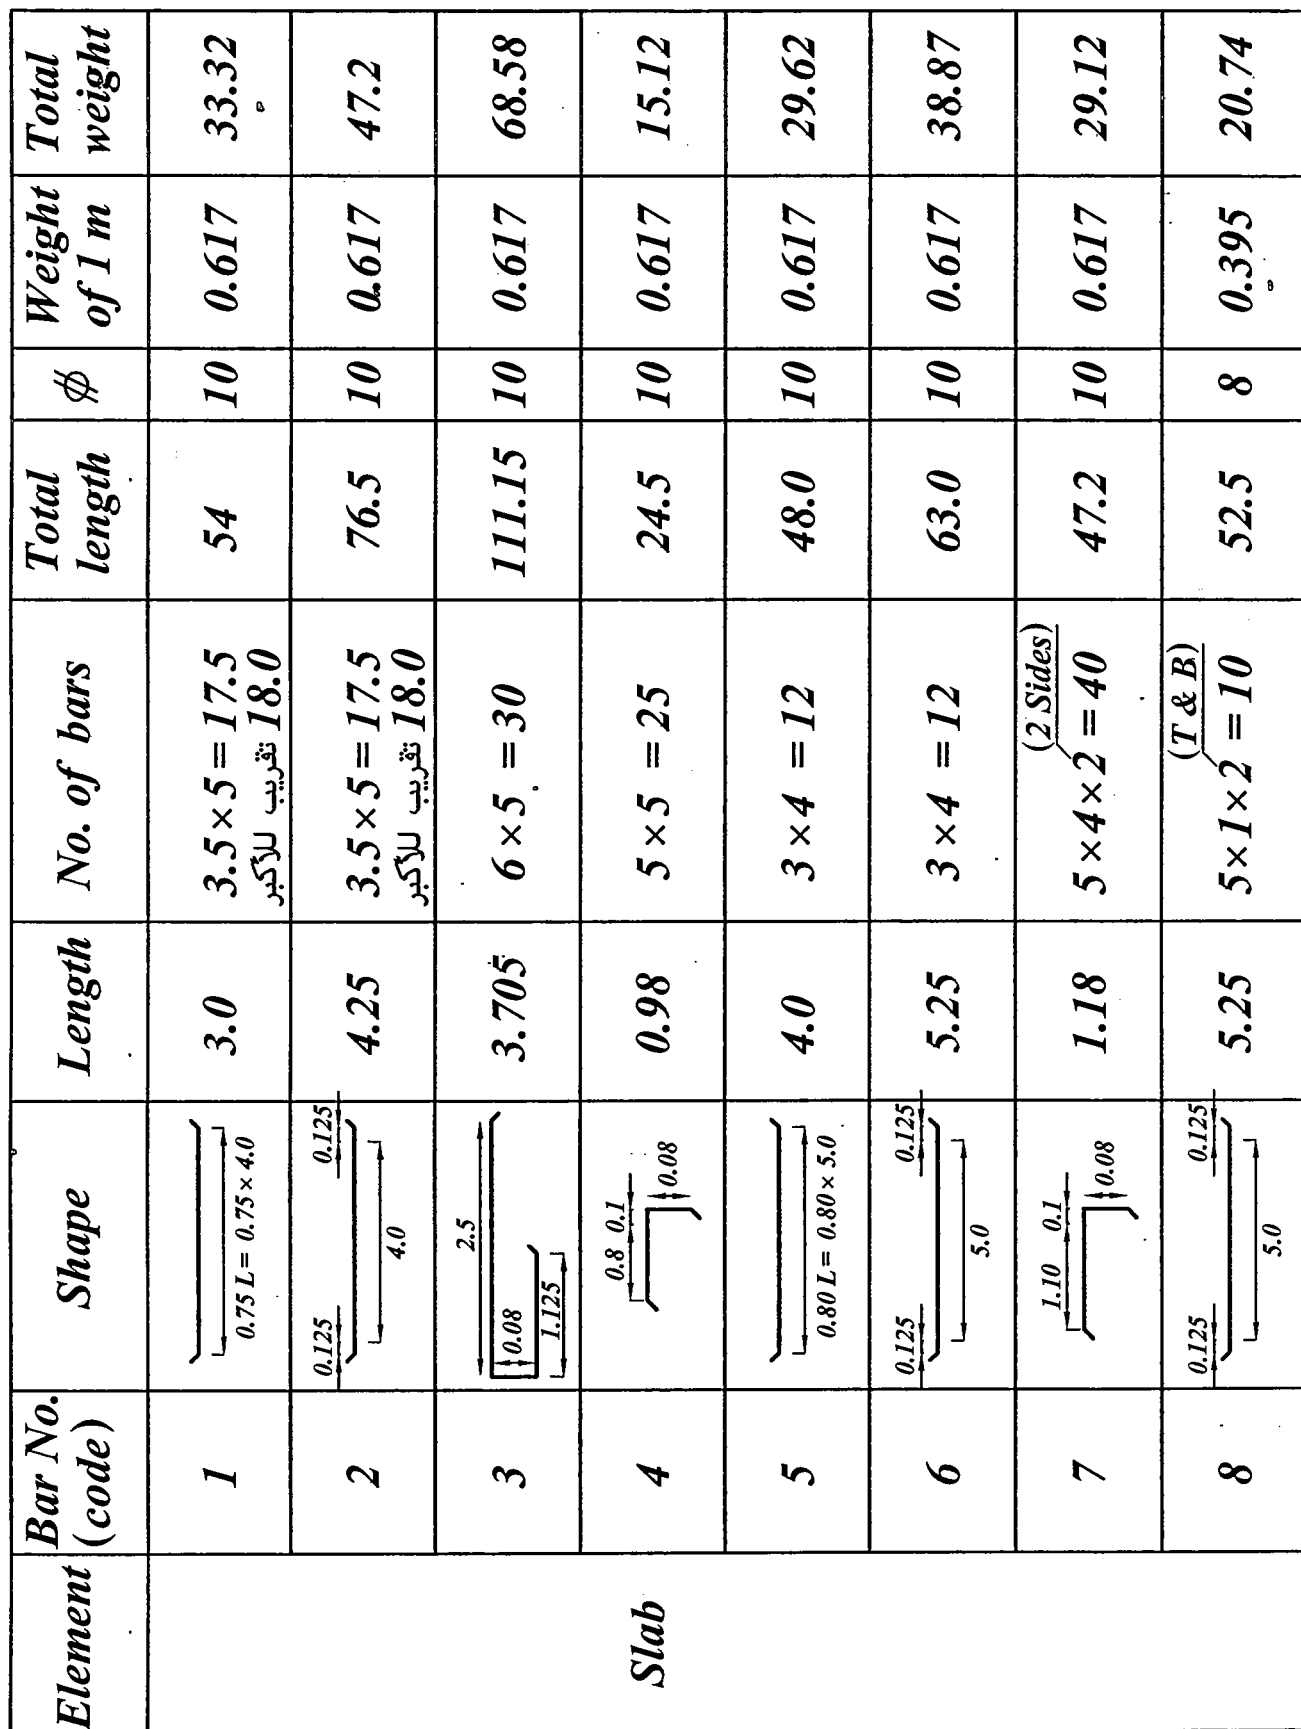 Element
Bar No.
(code)
Shape
Length
No. of bars
Total
length
ϕ
Weight
of 1 m
Total
weight
Slab
1
0.75 L = 0.75 × 4.0
3.0
3.5 × 5 = 17.5
تقريب للأكبر 18.0
54
10
0.617
33.32
2
0.125
0.125
4.0
4.25
3.5 × 5 = 17.5
تقريب للأكبر 18.0
76.5
10
0.617
47.2
3
2.5
0.08
1.125
3.705
6 × 5 = 30
111.15
10
0.617
68.58
4
0.8 0.1
0.08
0.98
5 × 5 = 25
24.5
10
0.617
15.12
5
0.80 L = 0.80 × 5.0
4.0
3 × 4 = 12
48.0
10
0.617
29.62
6
0.125
0.125
5.0
5.25
3 × 4 = 12
63.0
10
0.617
38.87
7
1.10 0.1
0.08
1.18
(2 Sides)
5 × 4 × 2 = 40
47.2
10
0.617
29.12
8
0.125
0.125
5.0
5.25
(T & B)
5 × 1 × 2 = 10
52.5
8
0.395
20.74